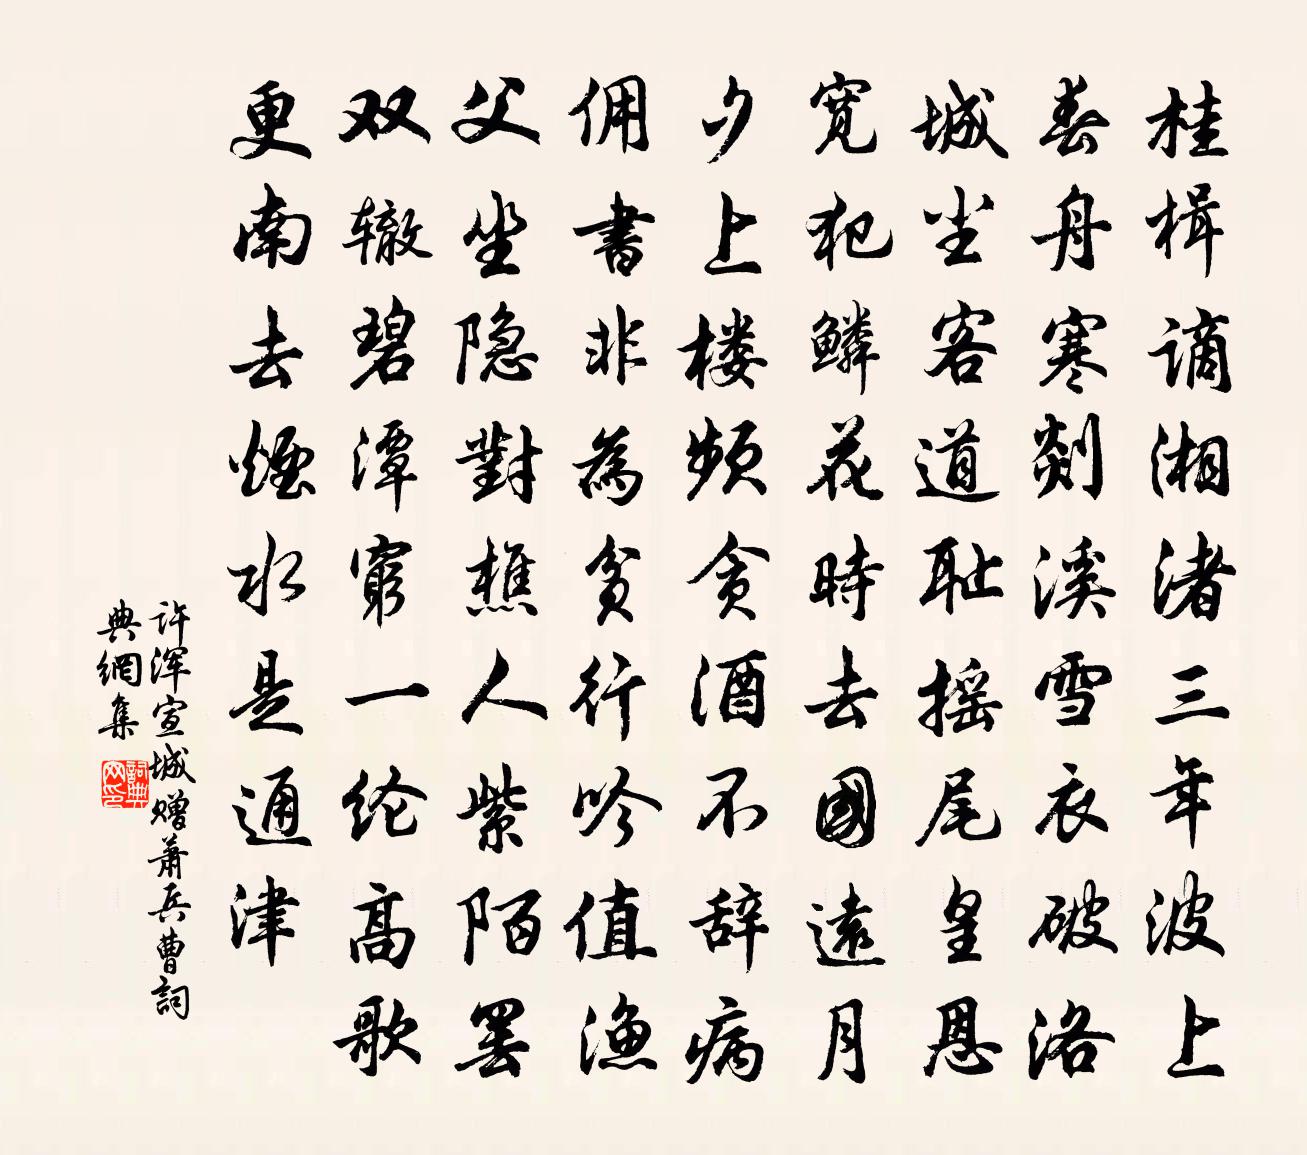 桂楫謫湘渚三年波上
春舟寒剡溪雪衣破洛
城尘客道耻摇尾皇恩
寛犯鳞花時去國遠月
夕上楼频贪酒不辞病
佣書非為貧行吟值漁
父坐隐對樵人紫陌罢
双辙碧潭窮一纶高歌
更南去煙水是通津
许浑宣城赠萧兵曹詞
典網集
詞典网